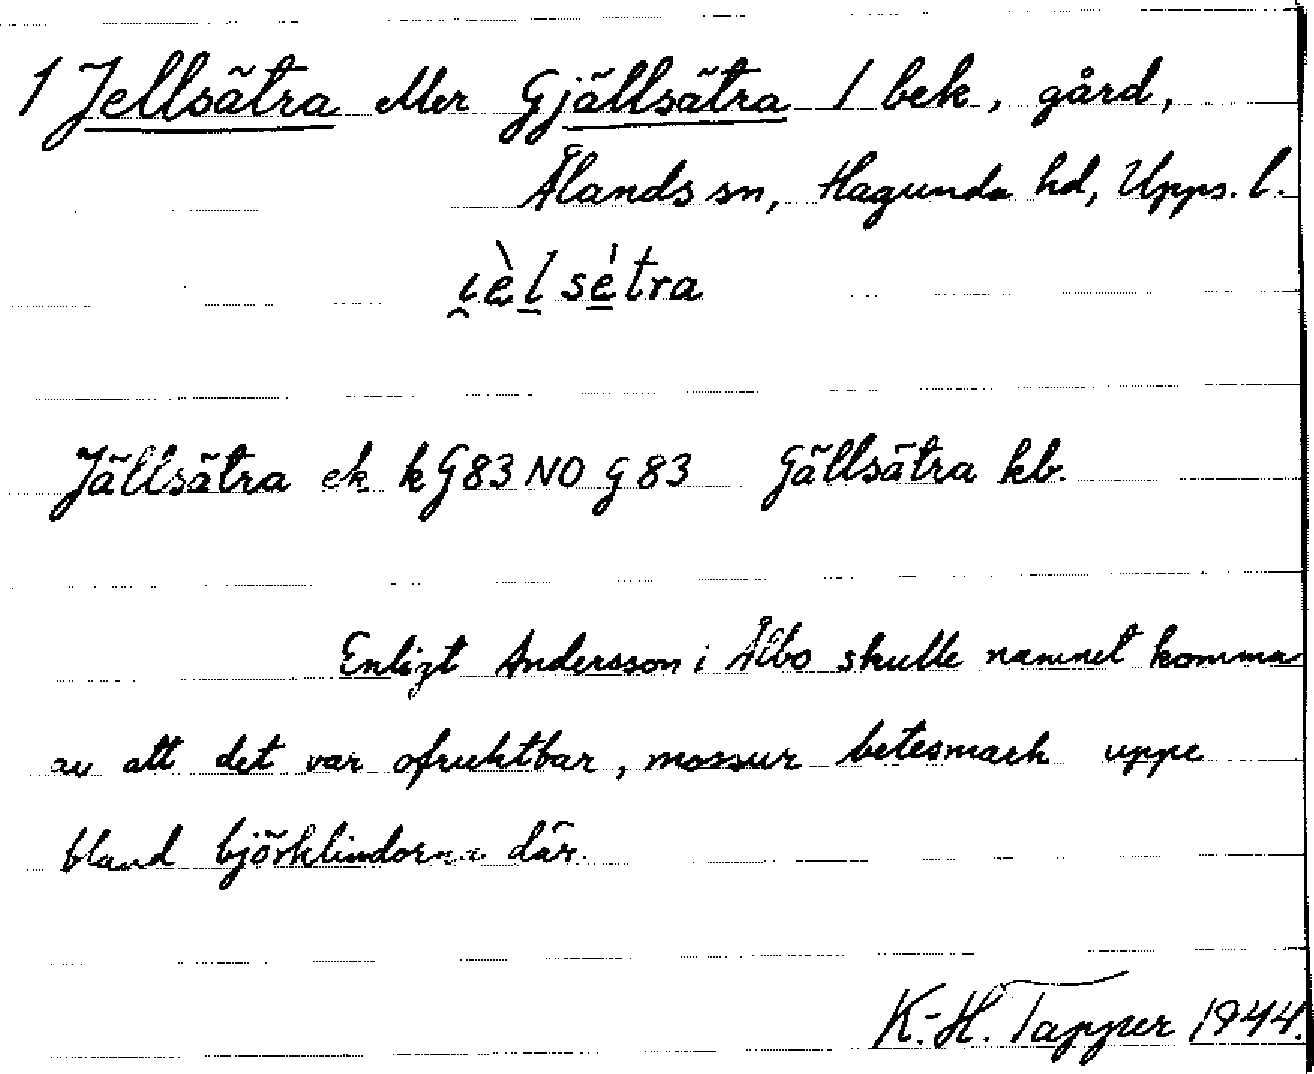 1 Jellsätra eller Gjällsätra / bek, gård,
Ålands sn, Hagunda hd, Upps. l.
i̯èl̲sé̲tra
Jällsätra ek kG83NO G83 Gällsätra kb.
Enligt Andersson i Ålbo skulle namnet komma
av att det var ofruktbar, mossur betesmark uppe
bland björklindorna där.
K.-H. Tapper 1944.